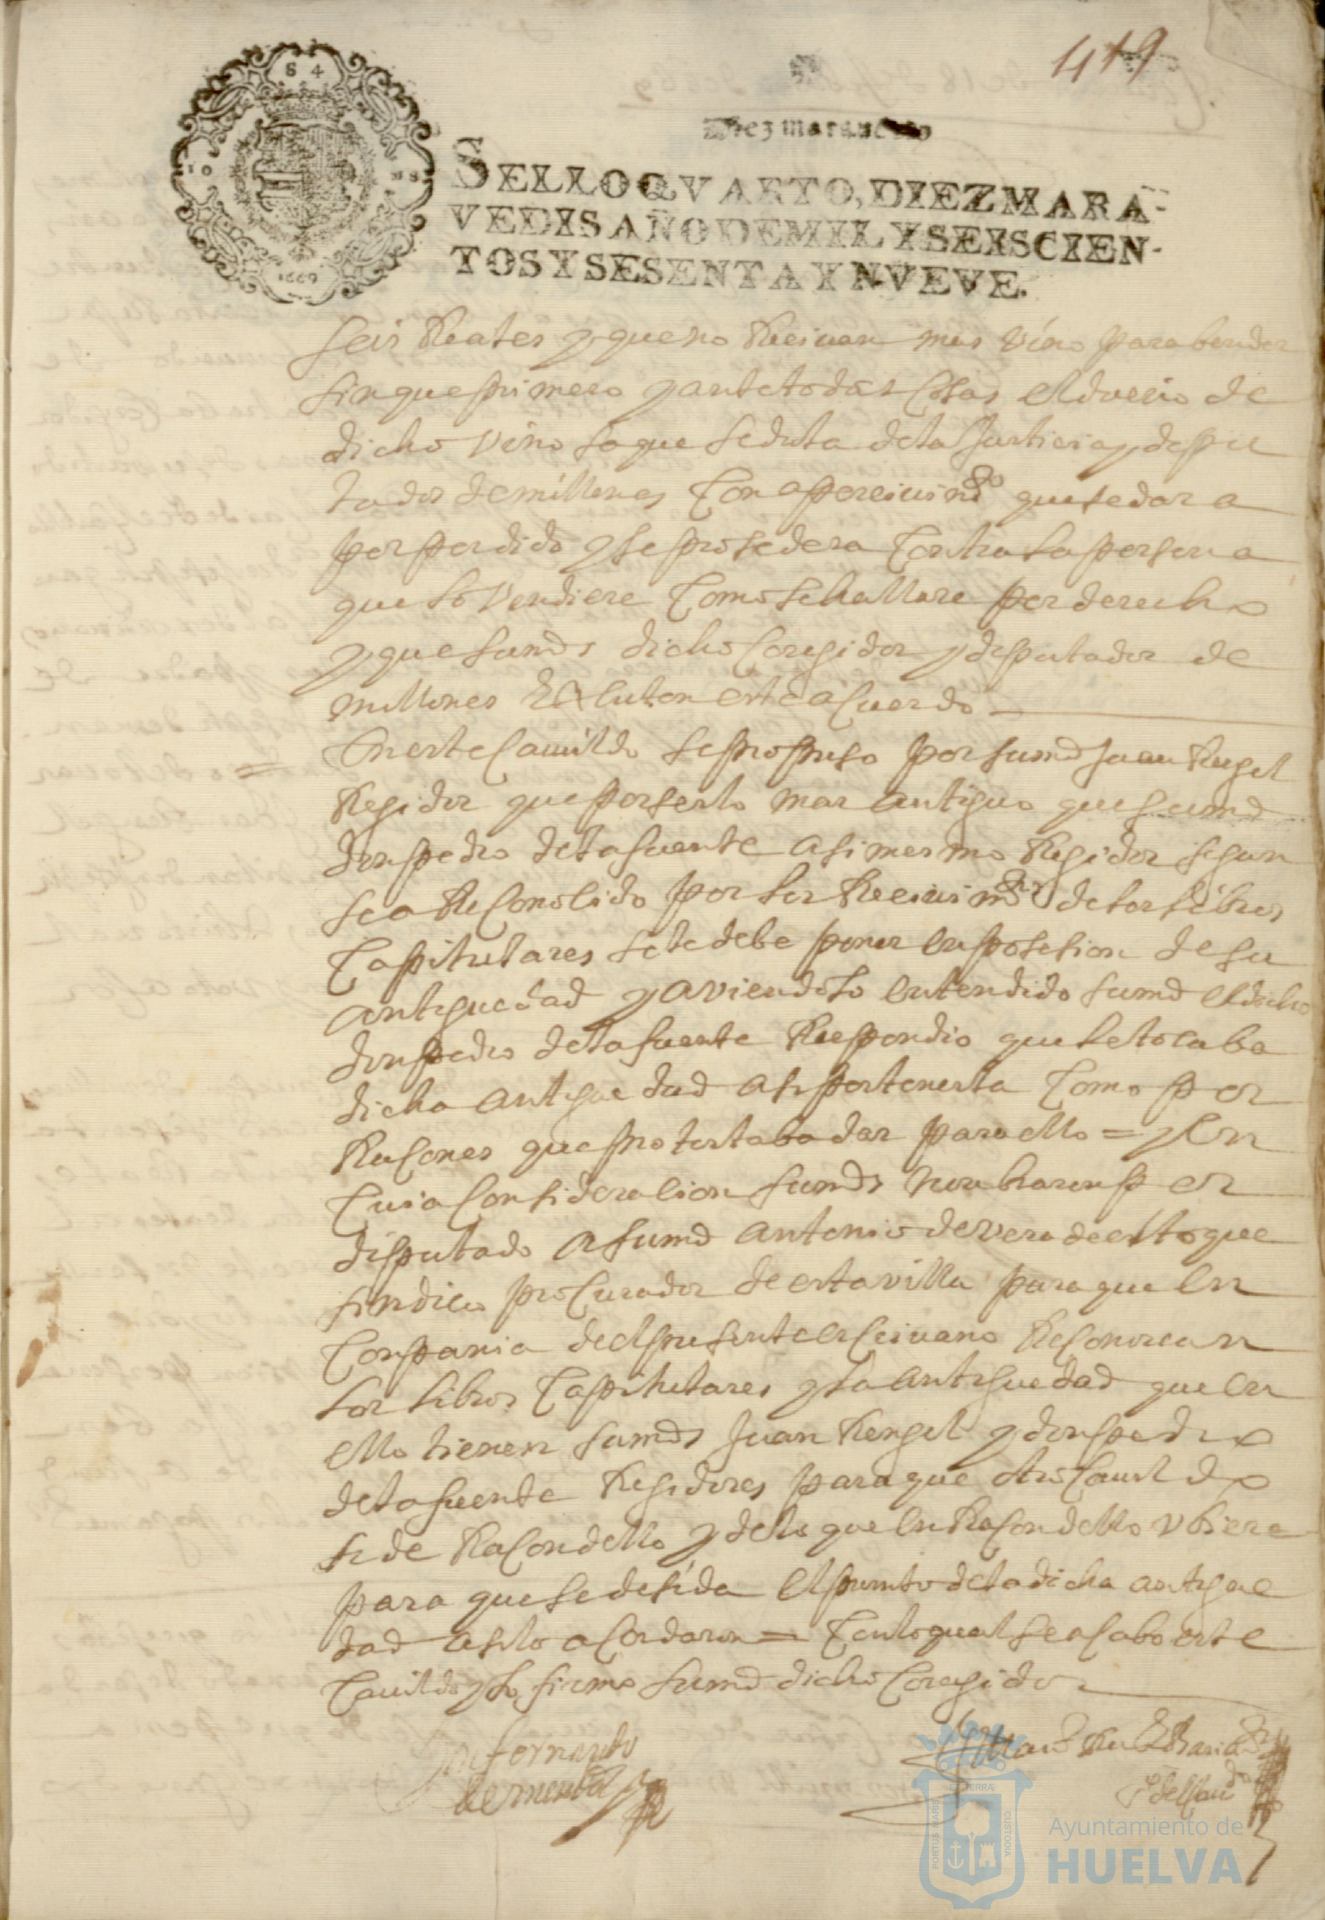 419
S 4
10 MS
1669
Diez maravedis
SELLO QVARTO, DIEZ MARA-
VEDIS AÑO DE MIL Y SEISCIEN-
TOS Y SESENTA Y NVEVE.
seis Reales y que no Reciuan mas vino para bender
sin que primero y ante todas Cosas el dueño de
dicho vino saque sedula de la Justicia y depu
tados de millones Con apersiuimdo que se dara
por perdido y se prosedera Contra la persona
que lo vendiere Como se hallare por derecho
y que sus mds dicho Coregidor y diputados de
millones executen este acuerdo
= En este Cauildo se propuso por su md Juan Rengel
Regidor que por serlo mas antiguo que su md
don pedro de la fuente asimesmo Regidor segun
sea ReConosido por los Reciuimtos de los libros
Capitulares se le debe poner en posesion de su
antiguedad y aviendolo entendido su md el dicho
don pedro de la fuente Respondio que le tocaba
dicha antiguedad asi pertenerla Como por
Rasones que protestaba dar para ello = y en
Cuia Consideracion sus mds nonbraron por
diputado a su md Antonio de vera de el toque
sindico proCurador de esta villa para que en
Conpania del presente escriuano ReConoscan
los libros Capitulares y la antiguedad que en
ello tienen sus mds Juan Rengel y don pedro
de la fuente Regidores para que otro Cauildo
se de Rason dello y de lo que en Rason dello vbiere
para que se desida el punto de la dicha antigue
dad asi lo acordaron = Con lo qual se acabo este
Cauildo y lo firmo su md dicho Coregidor
Don fernando
Ayuntamiento de
HUELVA
PORTUS MARIS
ET TERRAE
CUSTODIA